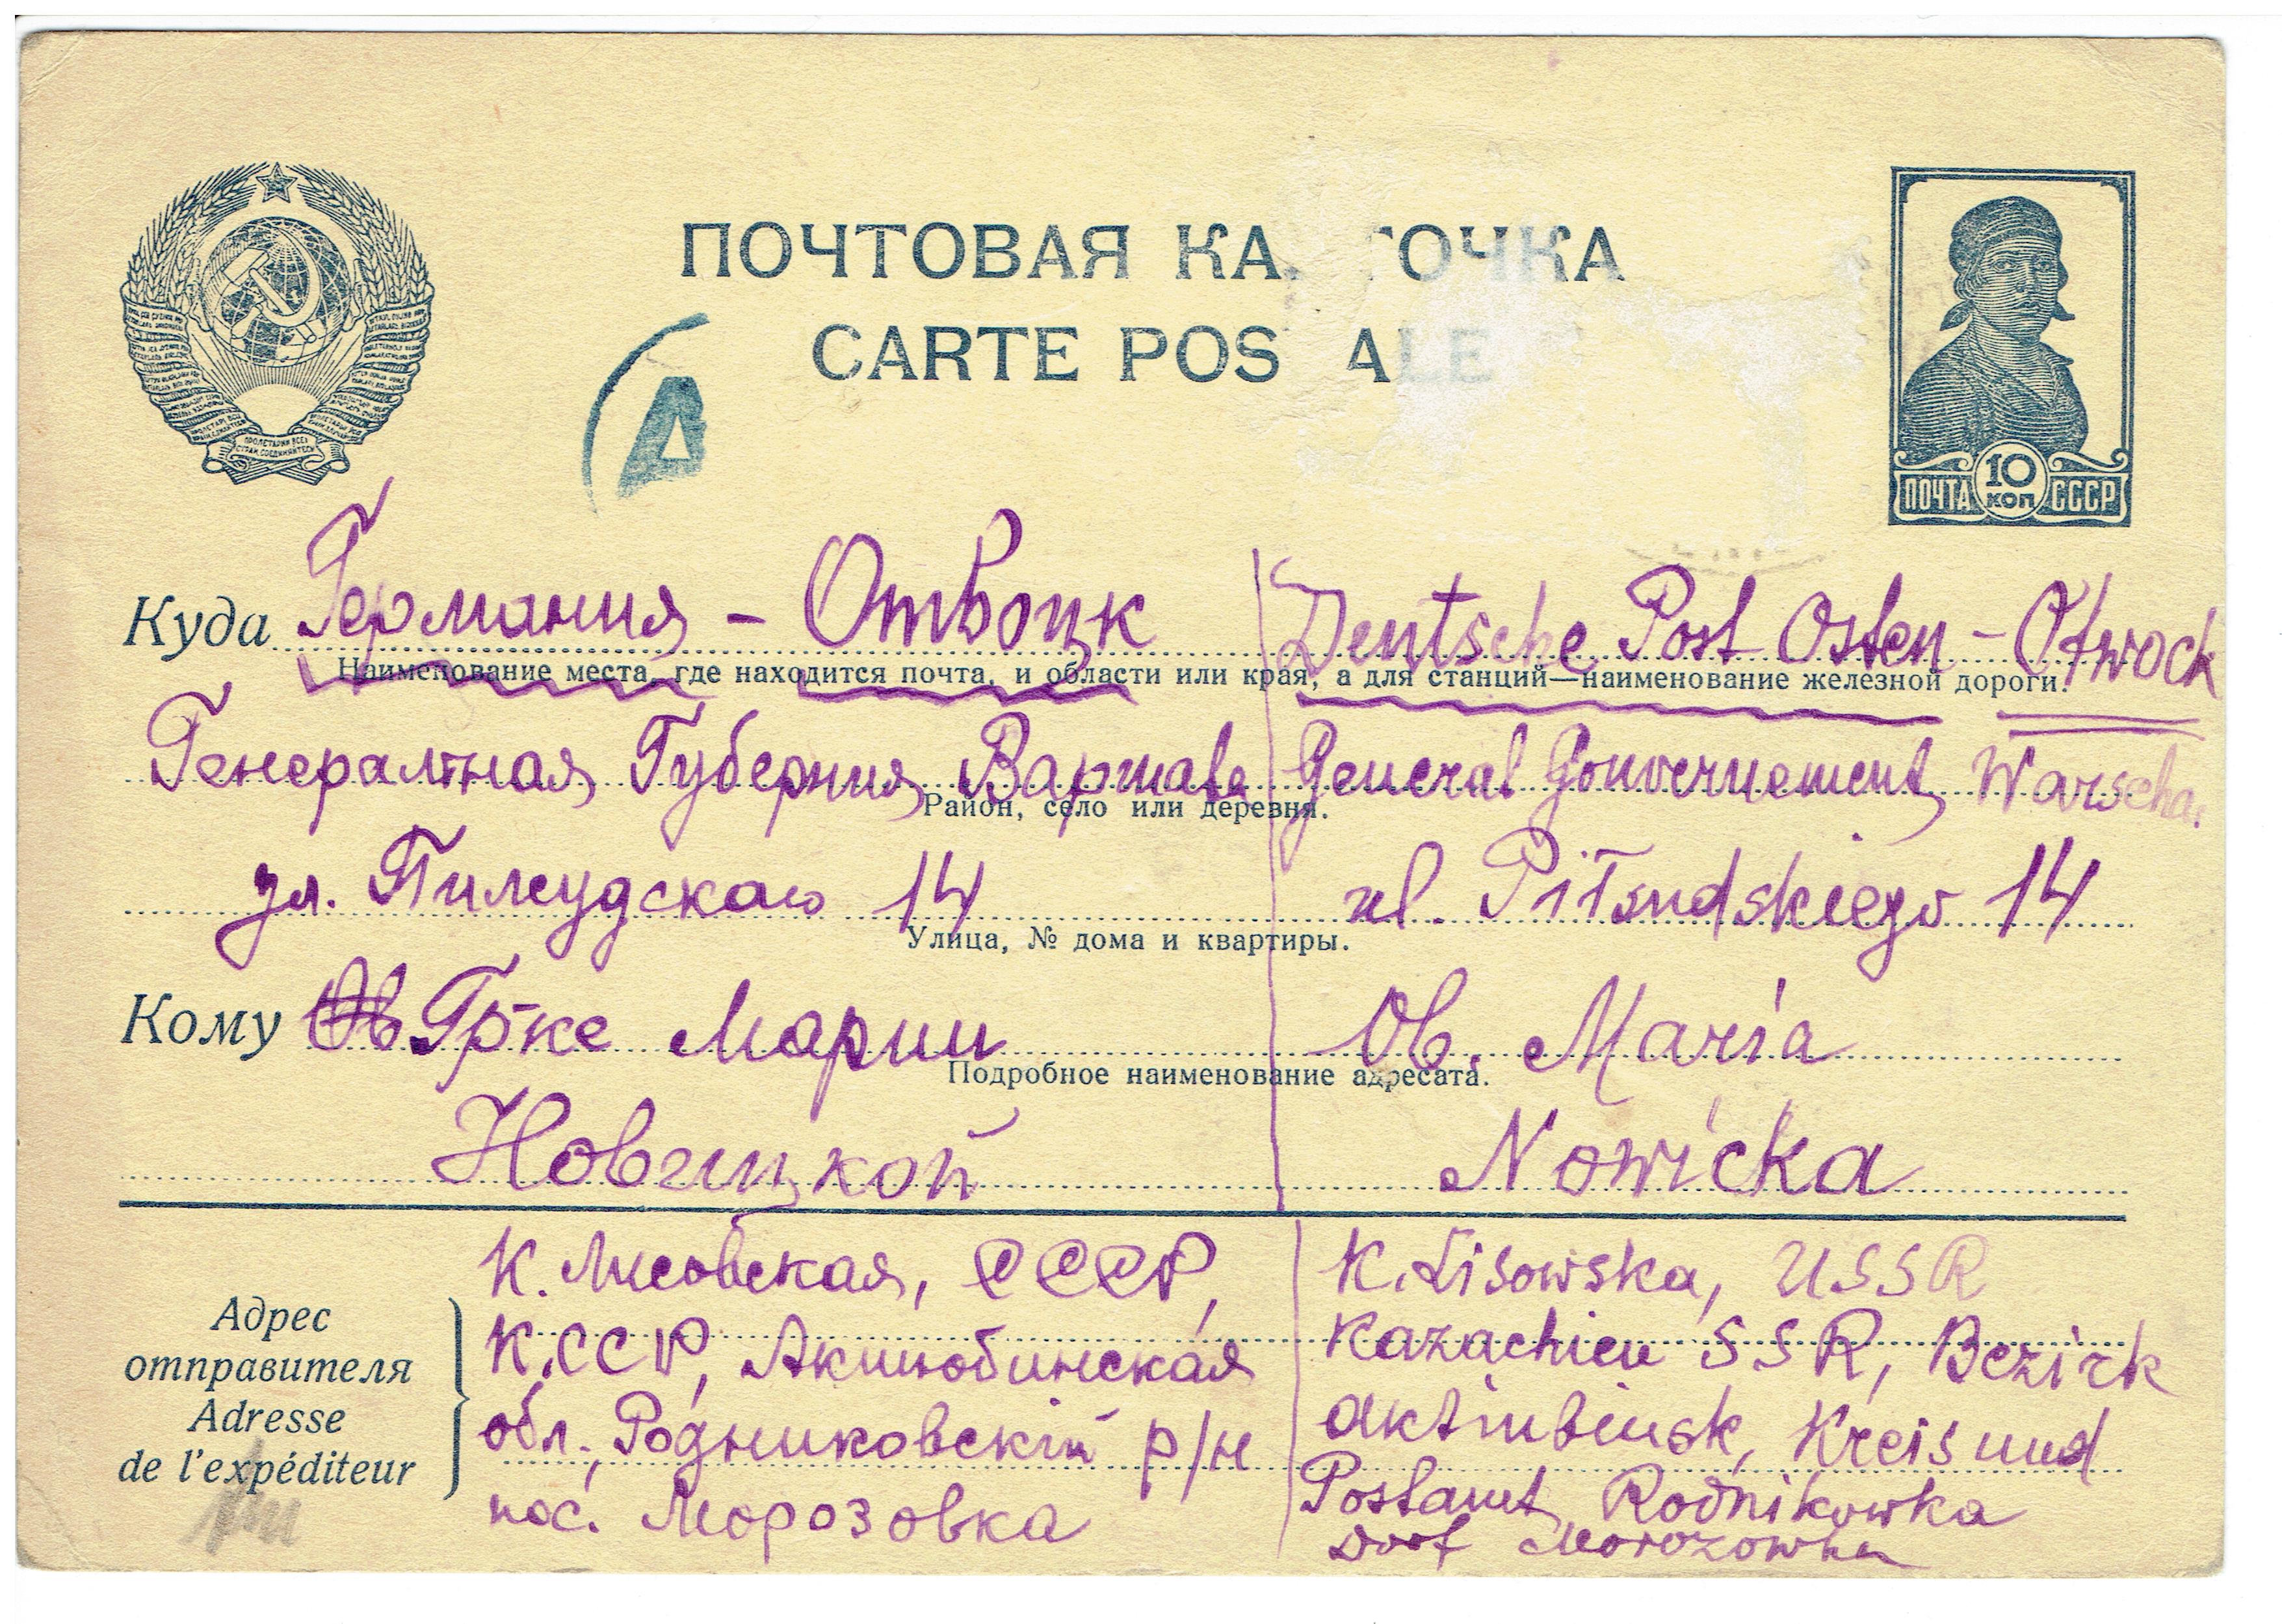 ПОЧТОВАЯ КАРТОЧКА
CARTE POSTALE
A
10
КОП
ПОЧТА СССР
ПРОЛЕТАРИИ ВСЕХ
СТРАН, СОЕДИНЯЙТЕСЬ
Куда Германия – Отвоцк
Deutsche Post Osten – Otwock
Наименование места, где находится почта, и области или края, а для станций—наименование железной дороги.
Генералтная Губерния Варшава
General Gouvernement, Warschau
Район, село или деревня.
ул. Пилсудскаго 14
ul. Piłsudskiego 14
Улица, № дома и квартиры.
Кому Гр-ке Марии
Ob. Maria
Подробное наименование адресата.
Новицкой
Nowicka
Адрес
отправителя
Adresse
de l'expéditeur
К. Лисовская, СССР,
К.ССР, Актюбинская
обл., Родниковскій р/н
пос. Морозовка
K. Lisowska, USSR
Kazachien SSR, Bezirk
Aktiubinsk, Kreis und
Postamt Rodnikowka
Dorf Morozowka